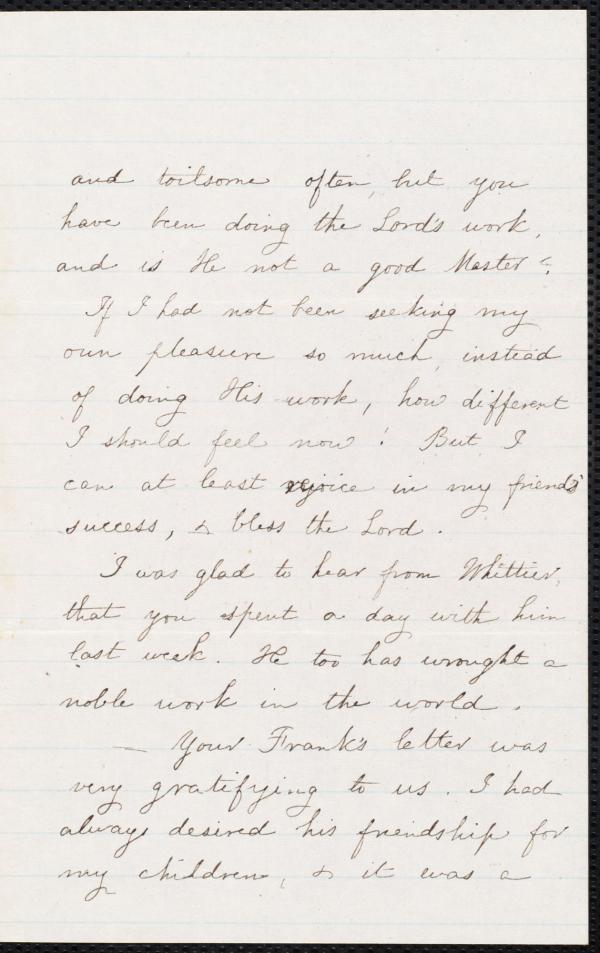 and toilsome often, but you
have been doing the Lord's work,
and is He not a good Master?
If I had not been seeking my
own pleasure so much, instead
of doing His work, how different
I should feel now! But I
can at least rejoice in my friends'
success, & bless the Lord.
I was glad to hear from Whittier,
that you spent a day with him
last week. He too has wrought a
noble work in the world.
— Your Frank's letter was
very gratifying to us. I had
always desired his friendship for
my children, & it was a